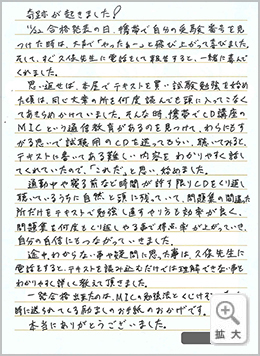 奇跡が起きました!
11/22 合格発表の日、携帯で自分の受験番号を
見つけた時は、大声で「やったぁ～」と飛び上がって喜びました。
そして、すぐ久保先生に電話をして報告すると、一緒に喜んで
くれました。
思い返せば、本屋でテキストを買い試験勉強を始め
た頃は、同じ文章の所を何度読んでも頭に入ってこなく
てあきらめかけていました。そんな時、携帯でCD講座の
MICという通信教育があるのを見つけて、わらにもす
がる思いで試聴用のCDを送ってもらい、聴いてみると、
テキストに書いてある難しい内容をわかりやすく話し
てくれていたので、「これだ」と思い、始めました。
通勤中や寝る前など時間が許す限りCDをくり返し
聴いているうちに自然と頭に残っていて、問題集の間違った
所だけをテキストで勉強し直すやり方も効率が良く、
問題集を何度とくり返しやる事で得点率が上がっていき、
自分の自信にもつながっていきました。
途中わからない事や疑問に思った事は、久保先生に
電話をすると、テキストを読み込むだけでは理解できない事も
わかりやすく詳しく教えて頂きました。
一発合格出来たのは、MICの勉強法とくじけそう
時に送られてくる励ましのお手紙のおかげです。
本当にありがとうございました。
拡大